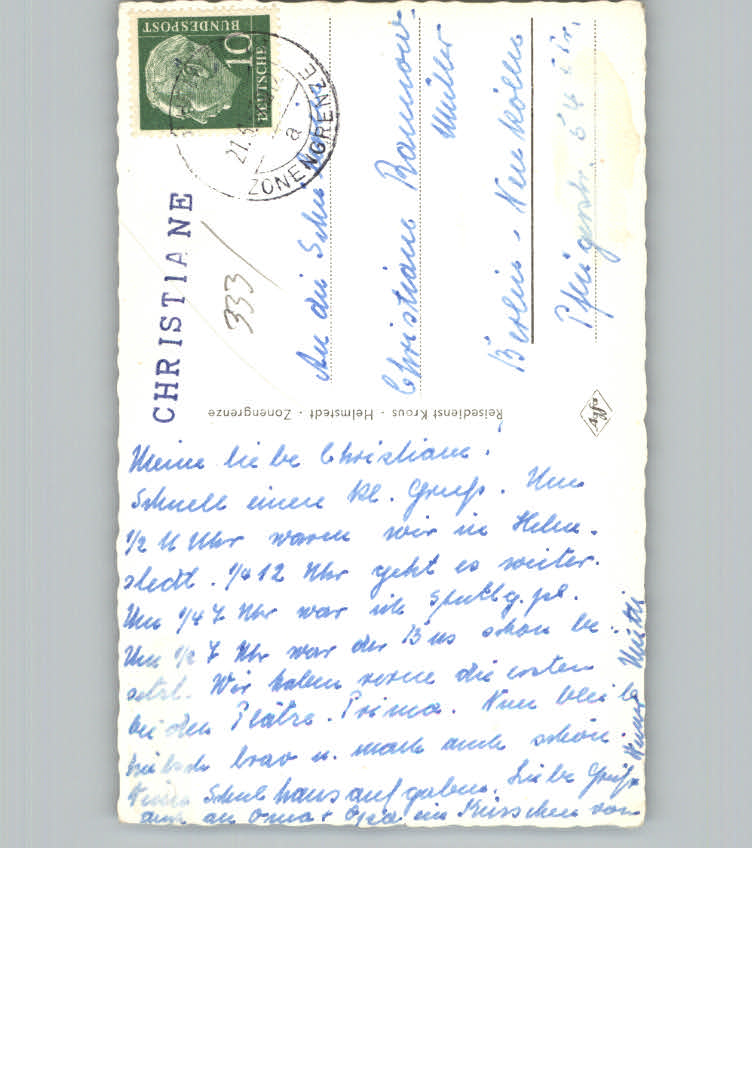 DEUTSCHE
BUNDESPOST
10
21.
ZONENGRENZE
a
CHRISTIANE
333
An die
Christiane
Müller
Berlin - Neukölln
54
Reisedienst Kraus - Helmstedt - Zonengrenze
Agfa
Meine liebe Christiane.
Schnell einen kl. Gruß. Um
1/2 11 Uhr waren wir in Helm-
stedt. 1/4 12 Uhr geht es weiter.
Um 1/4 7 Uhr war ich
Um 1/2 7 Uhr war der Bus schon be-
setzt. Wir haben vorne die ersten
beiden Plätze. Prima. Nun bleib
hübsch brav u. mach auch schön
Schulhausaufgaben. Liebe Grüße
auch an Oma + Opa ein Küsschen von
Mutti